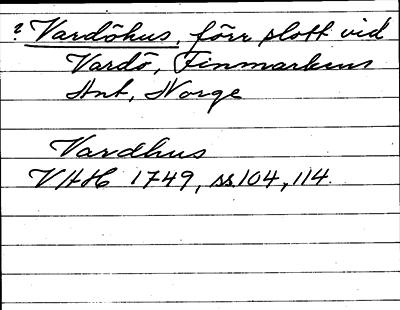 ? Vardöhus, förr slott vid
Vardö, Finmarkens
Amt, Norge
Vardhus
VHH 1749, ss.104, 114.